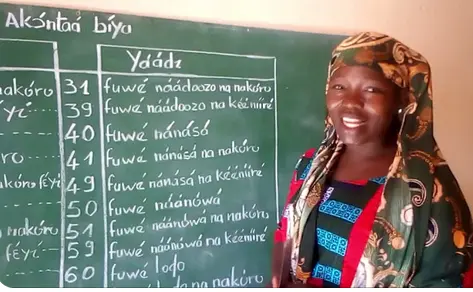 Akɔ́ntaá bíya
Yáádɩ
nakóro 31 fuwé náádoozo na nakóro
39 fuwé náádoozo na kééníiré
40 fuwé nánásá
41 fuwé nánásá na nakóro
49 fuwé nánásá na kééníiré
50 fuwé náánúwá
nakóro 51 fuwé náánúwá na nakóro
féyí 59 fuwé náánúwá na kééníiré
60 fuwé lodo
na nakóro